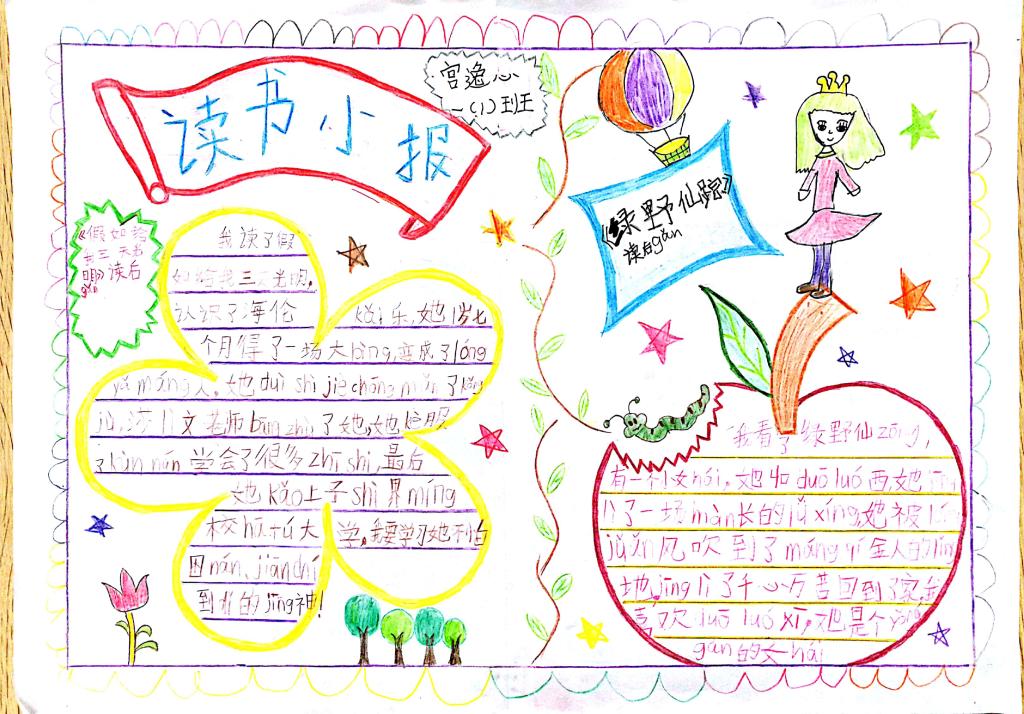 读书小报
宫逸心
一(1)班
《假如给
我三天光
明》读后
gǎn
我读了假
如给我三天光明,
认识了海伦
kǎi乐,她1岁七
个月得了一场大bìng,变成了lóng
yǎ máng人,她duì shì jiè chōng mǎn了kǒng
jù,莎lì文老师bāng zhù了她,她kè服
了kùn nán学会了很多zhī shi,最后
她kǎo上了shì界míng
校hā fú大学,我要学习她不怕
困nán,jiān chí
到底的jīng神!
《绿野仙踪》
读后gǎn
我看了绿野仙zōng,
有一个女hái,她叫duō luó西,她
了一场màn长的lǚ xíng,她被lóng
juǎn风吹到了máng
地,jīng lì了千心万苦回到了家,我
喜欢duō luó xī,她是个yǒng
gǎn的女hái